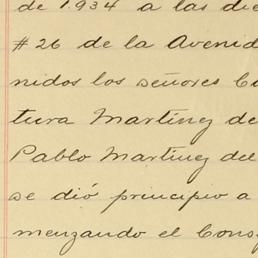 de 1934 a las die
#26 de la Avenid
nidos los señores Ca
tura Martínez de
Pablo Martínez del
se dió principio a
menzando el Cons